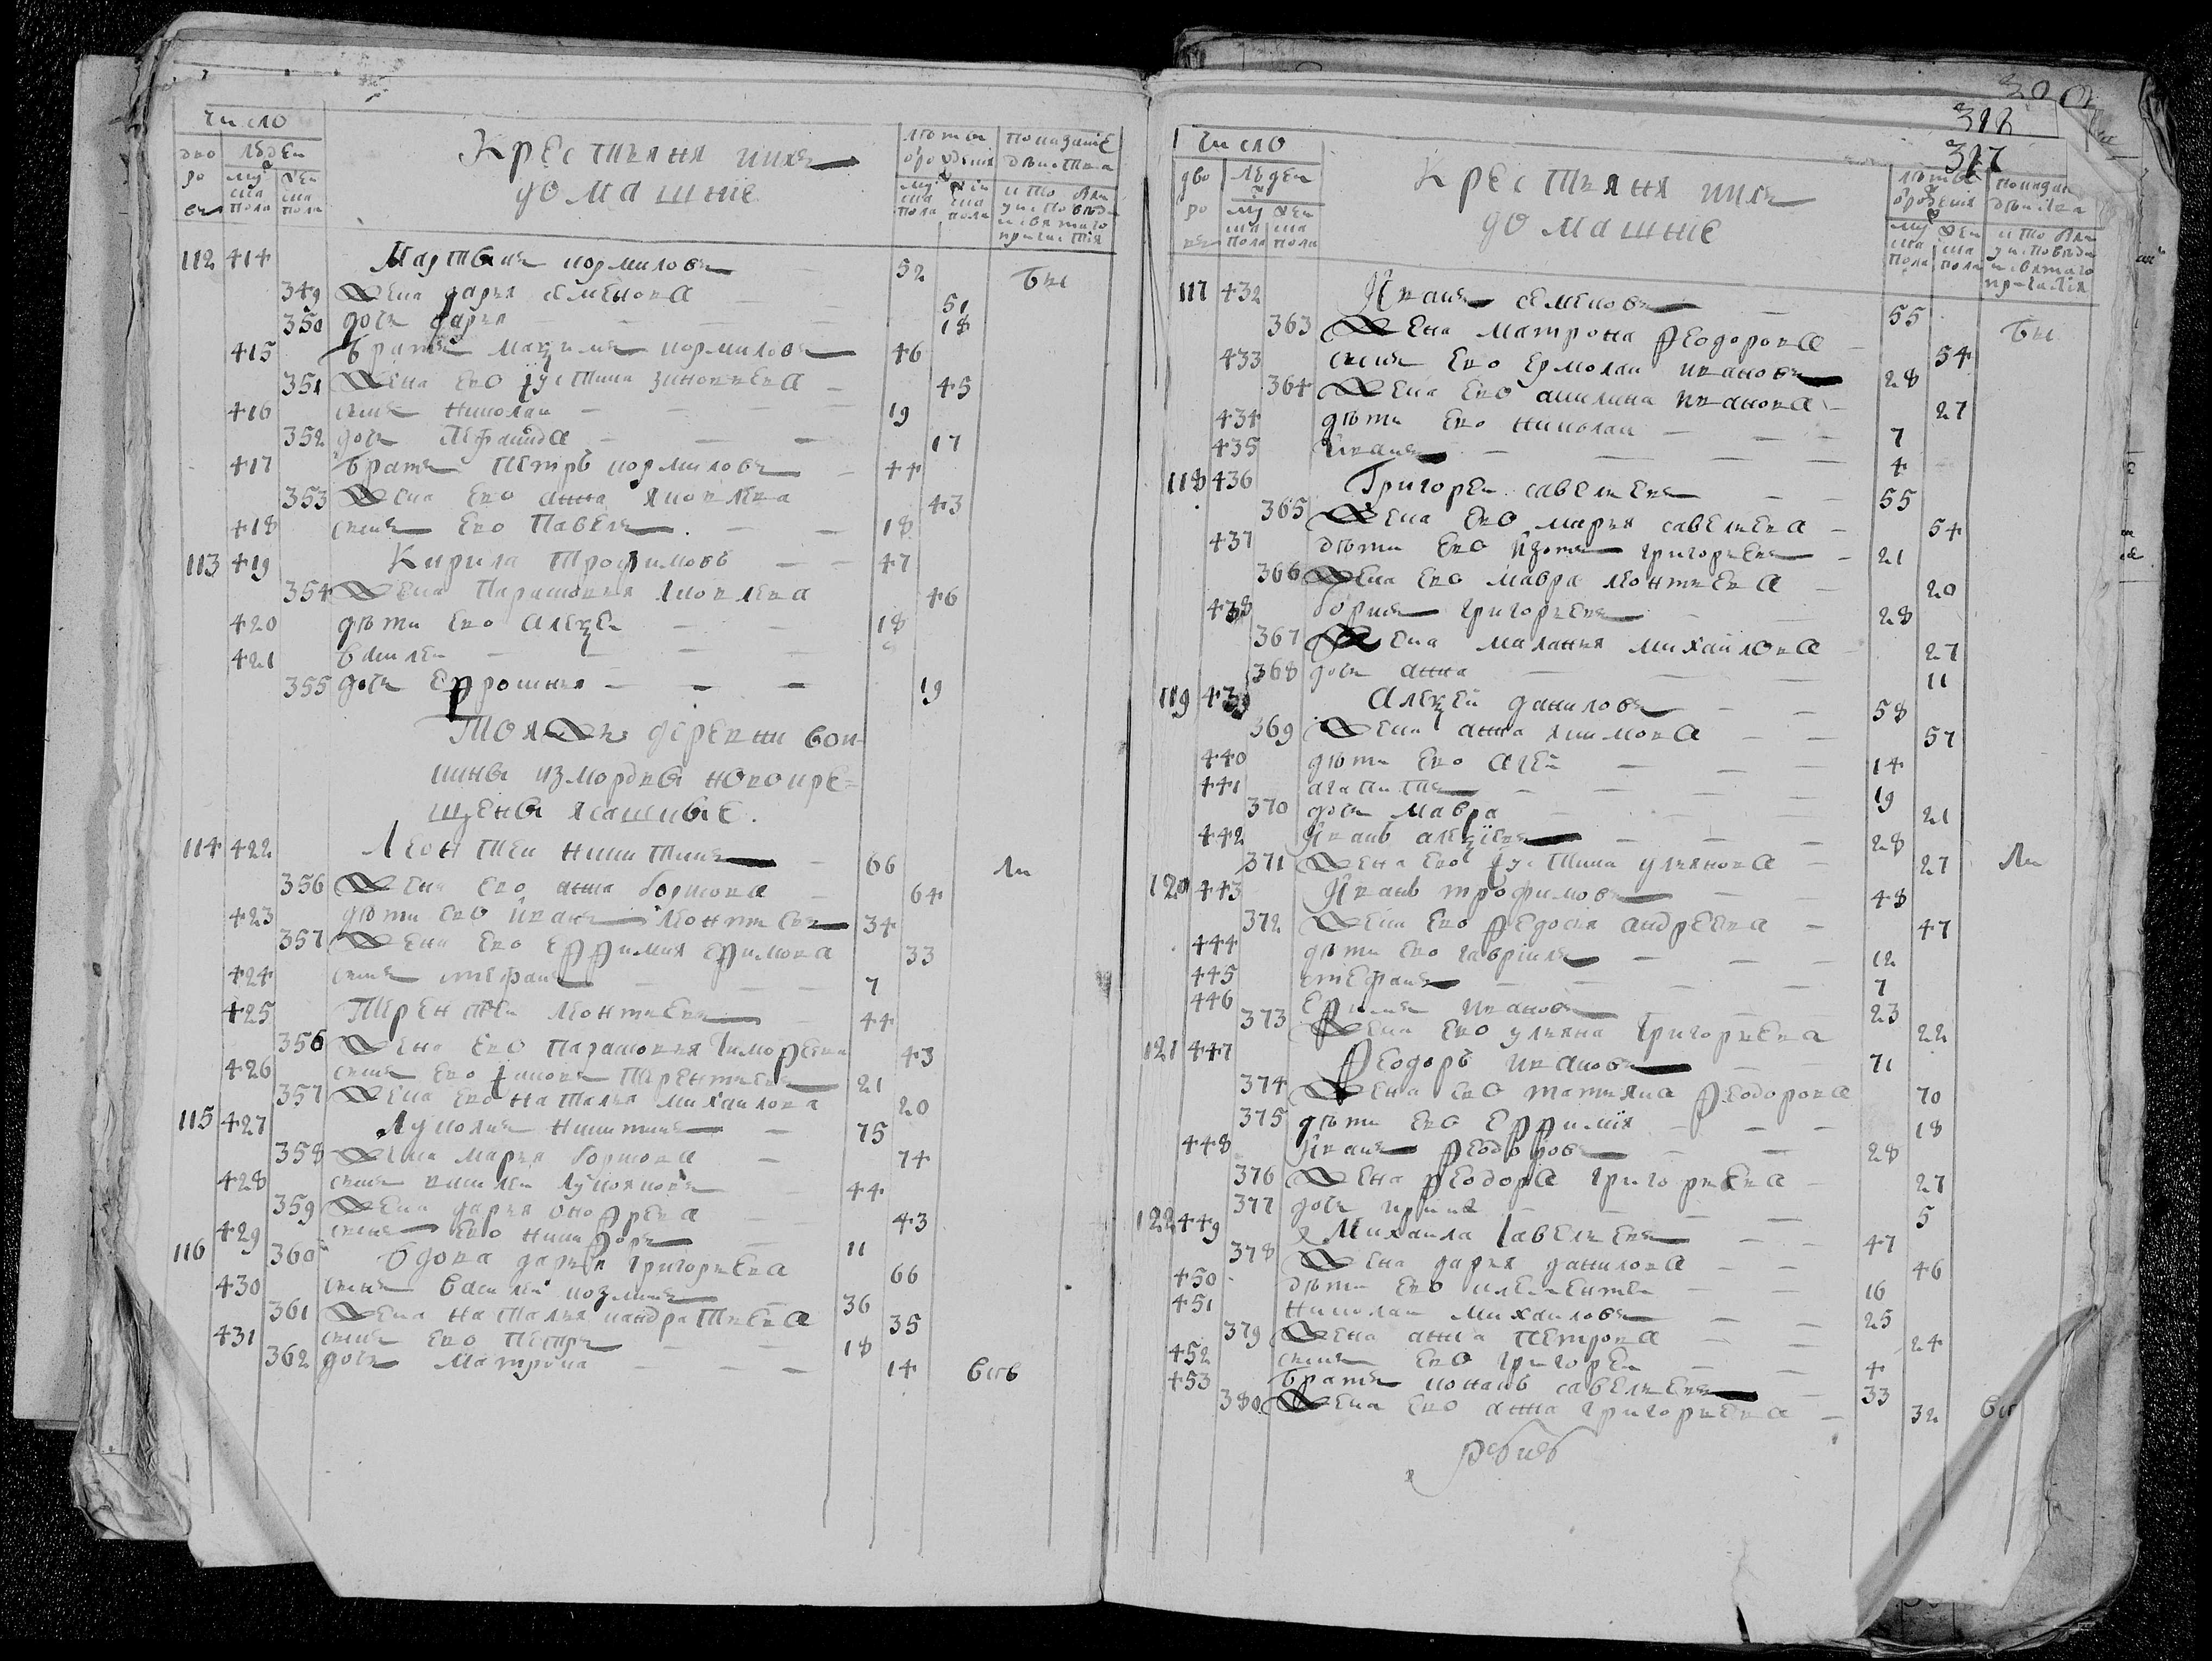 Число
дво
ро
въ
людеи
му
ска
пола
жен
ска
пола
Крестьяня ихъ
домашніе
лѣты
от рождения
му
ска
пола
жен
ска
пола
показаніе
действа
кто был
у исповеди
и святаго
причастия
112 414 Мартынъ кормиловъ — 52 бы
349 Жена дарья семенова — 51
350 дочь дарья — 18
415 братъ маѯимъ кормиловъ 46
351 Жена ево устина зиновьева — 45
416 сынъ николаи — 19
352 дочь — 17
417 братъ петръ кормиловъ — 44
353 Жена ево анна яковлева 43
418 сынъ ево павелъ — 18
113 419 Кирила трофимовъ — 47
354 Жена парасковья яковлева 46
420 дѣти ево алеѯеи — 18
421 василеи —
355 дочь еѳросинья — 19
Тояжъ деревни вои
кины из мордвы новокре=
щены ясашные.
114 422 Леонтеи никитинъ — 66 ли
356 Жена ево анна борисова — 64
423 дѣти ево иванъ леонтьевъ 34
357 Жена ево еѳѳимия еѳимова 33
424 сынъ стефанъ — 7
425 Терентеи леонтьевъ — 44
356 Жена ево парасковья тимоѳеева 43
426 сынъ ево яковъ терентьевъ 21
357 Жена ево наталья михаилова 20
115 427 Лукоянъ никитинъ — 75
358 Жена марья борисова — 74
428 сынъ василеи лукояновъ 44
359 Жена дарья оноѳреева — 43
429 сынъ ево никиѳоръ — 11
116 360 вдова дарья григорьева 66
430 сынъ василеи козминъ — 36
361 Жена наталья кандратьева 35
431 сынъ ево петръ — 18
362 дочь матрона — 14 всѣ
300
312
317
Число
дво
ро
въ
людеи
му
ска
пола
жен
ска
пола
Крестьяня ихъ
домашніе
лѣты
от рождения
му
ска
пола
жен
ска
пола
показан
действа
кто был
у исповеди
и святаго
причастия
117 432 Иванъ семеновъ — 55 бы
363 Жена матрона ѳеодорова — 54
433 сынъ ево ермолаи ивановъ 28
364 Жена ево акилина иванова — 27
434 дѣти ево николаи — 7
435 иванъ — 4
118 436 Григореи савельевъ — 55
365 Жена ево марья савельева — 54
437 дѣти ево изотъ григорьевъ — 21
366 Жена ево мавра леонтьева — 20
438 борисъ григорьевъ — 28
367 Жена маланья михаилова 27
368 дочь анна — 11
119 439 Алеѯеи даниловъ — 58
369 Жена анна якимова — 57
440 дѣти ево агеи — 14
441 агапитъ — 19
370 дочь мавра — 21
442 Иванъ алеѯіевъ — 28
371 Жена ево устина ульянова — 27 ли
120 443 Иванъ трофимовъ — 48
372 Жена ево ѳедосья андреева — 47
444 дѣти ево гавріилъ — 12
445 стефанъ — 7
446 еѳимъ ивановъ — 23
373 Жена ево ульяна григорьева 22
121 447 Ѳеодоръ ивановъ — 71
374 Жена ево татьяна ѳеодорова 70
375 дѣти ево еѳѳимія — 18
448 Иванъ ѳеодоровъ — 28
376 Жена ѳеодора григорьева — 27
377 дочь ирина — 5
122 449 Михаила савельевъ — 47
378 Жена дарья данилова — 46
450 дѣти ево клементеи — 16
451 николаи михаиловъ — 25
379 Жена анна петрова — 24
452 сынъ ево григореи — 4
453 братъ конанъ савельевъ — 33
380 Жена ево анна григорьева — 32 всѣ